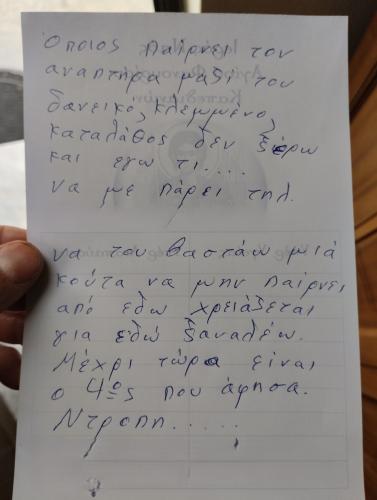 Οποιος παίρνει τον
αναπτηρα μαζι του
δανεικο, κλεμμενο,
καταλάθος δεν ξέρω
και εγω τι....
να με πάρει τηλ.
να του βαστάω μιά
κούτα να μην παίρνει
από εδω χρειάζεται
για εδώ ξαναλέω.
Μέχρι τώρα είναι
ο 4ος που άφησα.
Ντροπη.....